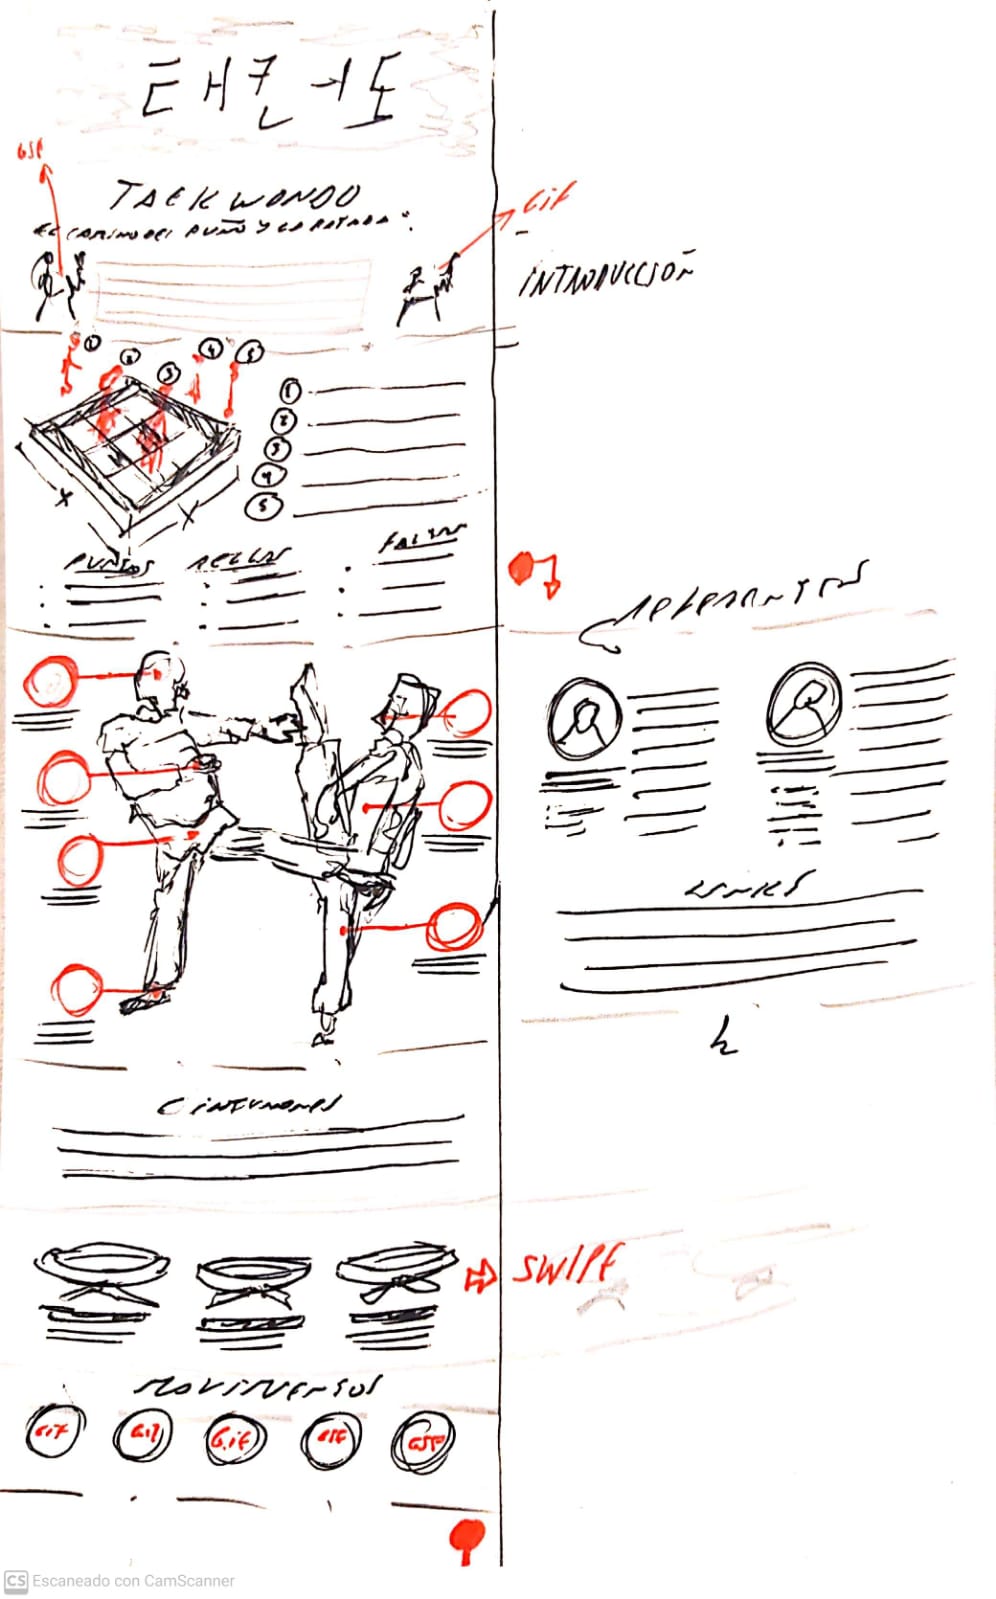 태권도
GIF
TAEKWONDO
EL CAMINO DEL PUÑO Y LA PATADA".
GIF
INTRODUCCIÓN
1
2
3
4
5
1
2
3
4
5
X
X
PUNTOS
REGLAS
FALTAS
REFERENTES
LINKS
CINTURONES
SWIPE
MOVIMIENTOS
GIF
GIF
GIF
GIF
GIF
CS Escaneado con CamScanner